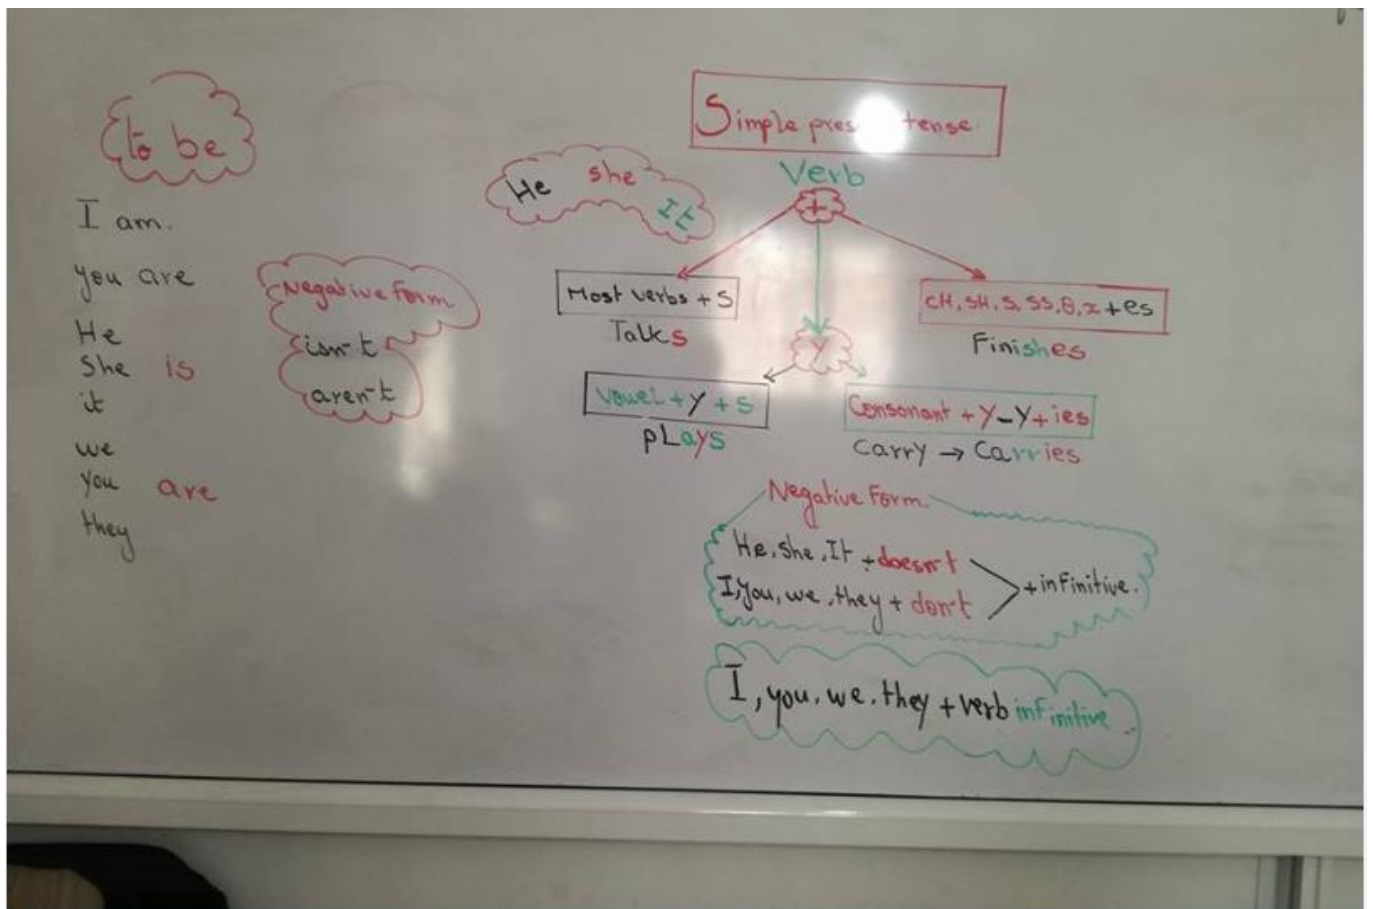 to be
I am.
you are
He
She is
it
we
you are
they
Negative form
isn-t
aren-t
Simple pres tense.
Verb
+
He she It
Most verbs + s
Talks
Y
Vowel + y + s
pLays
Consonant + y - y + ies
carry → carries
Finishes
Negative Form.
He, she, It + doesn-t
I, you, we, they + don-t
+ infinitive.
I, you, we, they + verb infinitive